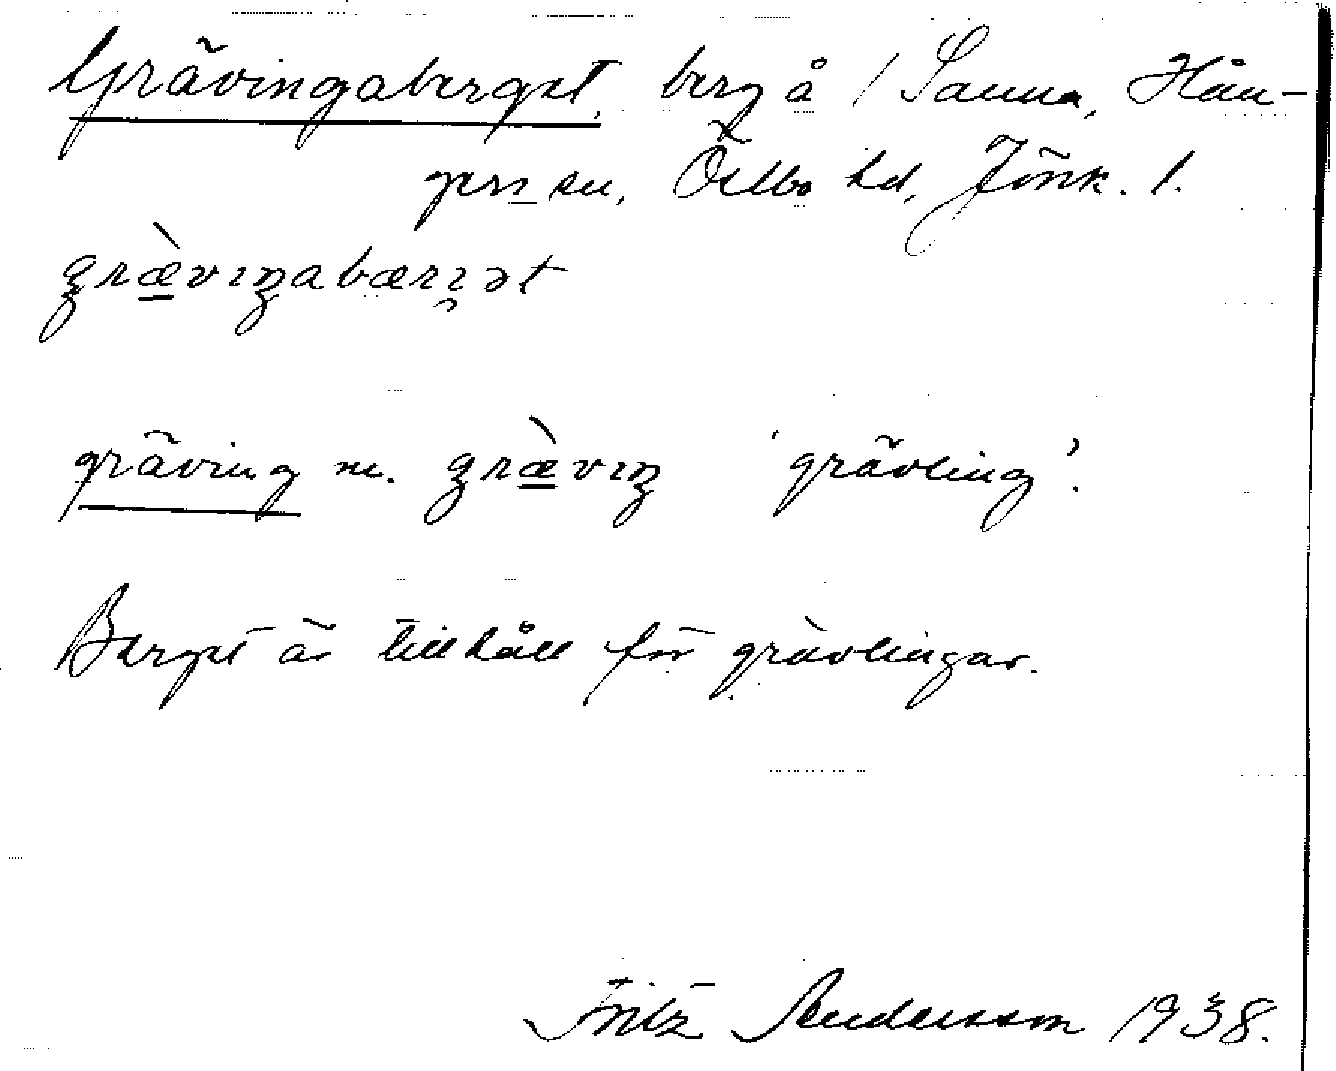 Grävingaberget, berg å / Sanna, Hån-
gers sn, Östbo hd, Jönk. l.
græ̀vıŋabærɪ̯ət
gräving m. græ̀vıŋ 'grävling'.
Berget är tillhåll för grävlingar.
Fritz Andersson 1938.